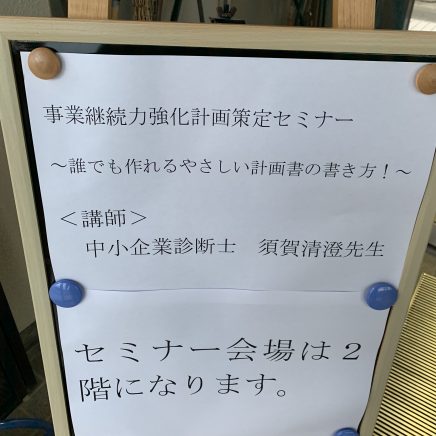 事業継続力強化計画策定セミナー
～誰でも作れるやさしい計画書の書き方！～
＜講師＞
中小企業診断士　須賀清澄先生
セミナー会場は２
階になります。